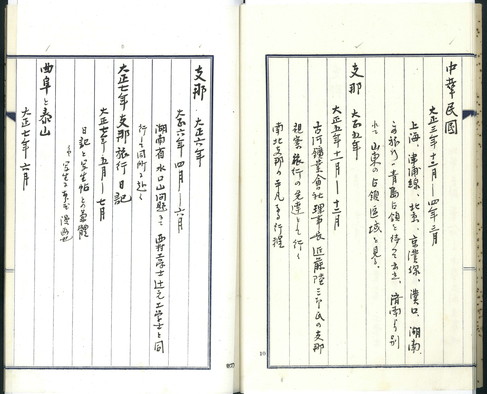 中華民國
大正三年十二月―四年三月
上海、津浦線、北京、京漢線、漢口、湖南、
の旅り 青島占領と 済南より別
れて山東の占領区域を見る、
支那 大正五年
大正五年十一月―十二月
古河鑛業會社理事長近藤陸三郎氏の支那
視察旅行の先達として行く
南北支那の平凡なる行程
支那 大正六年
大正六年四月―六月
湖南省水口山問題にて 西村工学士 辻元工学士と同
行して同所に赴く
大正七年 支那旅行日記
大正七年五月―七月
日記と写生帖との合體
曲阜と泰山
大正七年六月